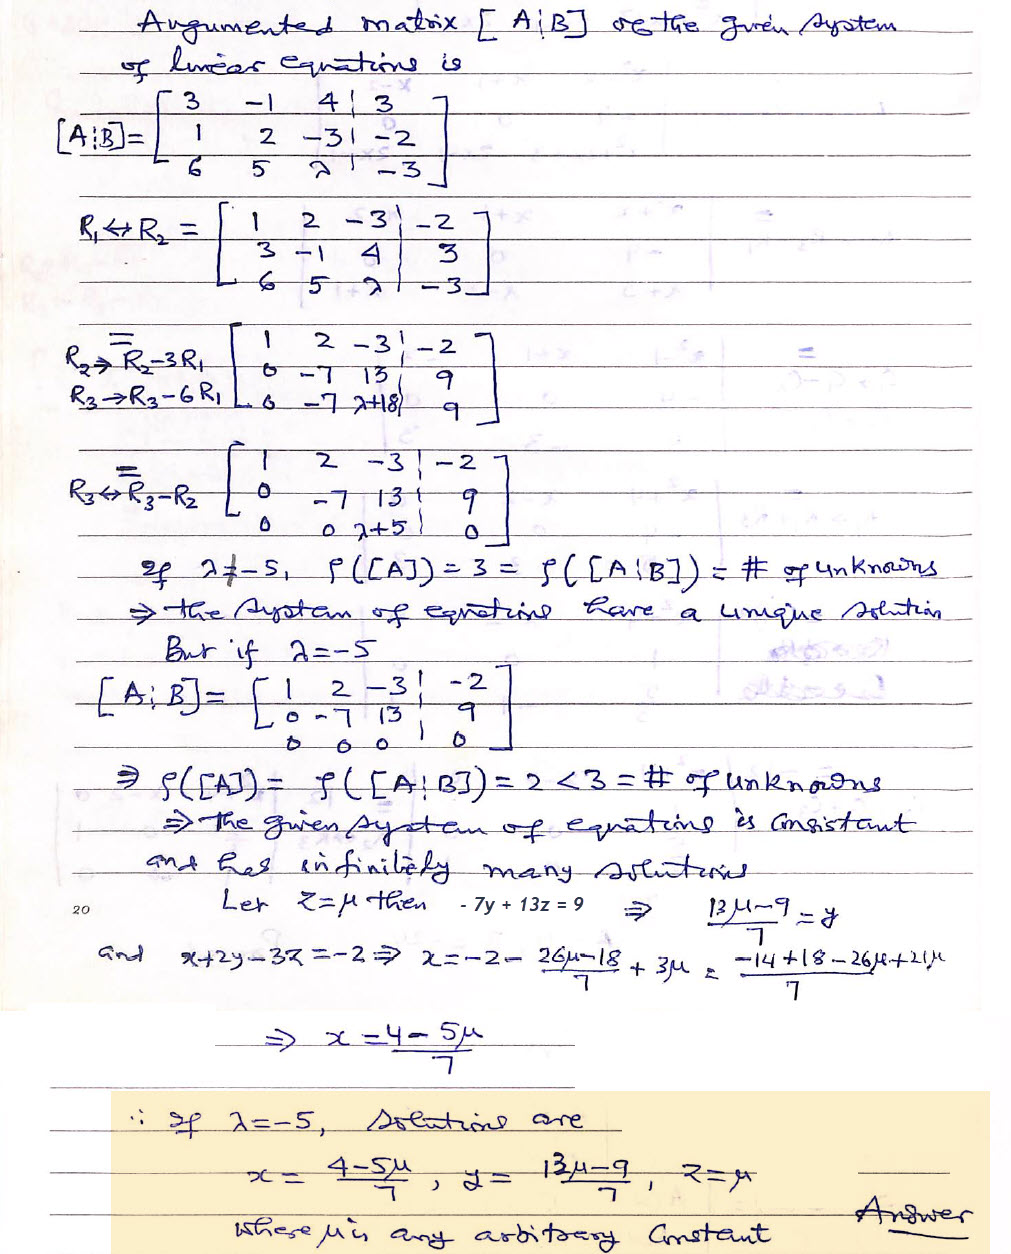 Augumented matrix [A¦B] of the given system
of linear equations is
[A¦B]= [ 3 -1 4 ¦ 3
1 2 -3 ¦ -2
6 5 λ ¦ -3 ]
R₁↔R₂ = [ 1 2 -3 ¦ -2
3 -1 4 ¦ 3
6 5 λ ¦ -3 ]
= [ 1 2 -3 ¦ -2
R₂→R₂-3R₁ 0 -7 13 ¦ 9
R₃→R₃-6R₁ 0 -7 λ+18 ¦ 9 ]
= [ 1 2 -3 ¦ -2
R₃↔R₃-R₂ 0 -7 13 ¦ 9
0 0 λ+5 ¦ 0 ]
If λ≠-5, ρ([A]) = 3 = ρ([A¦B]) = # of unknowns
⇒ the system of equations have a unique solution
But if λ=-5
[A¦B]= [ 1 2 -3 ¦ -2
0 -7 13 ¦ 9
0 0 0 ¦ 0 ]
⇒ ρ([A]) = ρ([A¦B]) = 2 < 3 = # of unknowns
⇒ the given system of equations is consistant
and has infinitely many solutions
20 Let z=μ then - 7y + 13z = 9 ⇒ (13μ-9)/7 = y
and x+2y-3z=-2 ⇒ x=-2- (26μ-18)/7 + 3μ = (-14+18-26μ+21μ)/7
⇒ x = (4-5μ)/7
∴ If λ=-5, solutions are
x = (4-5μ)/7, y = (13μ-9)/7, z=μ
where μ is any arbitrary constant Answer